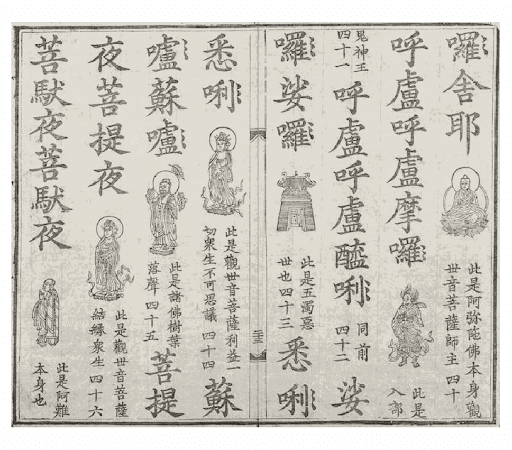 囉舍耶 此是阿彌陀佛本身觀世音菩薩師主 四十
呼盧呼盧摩囉 此是八部
鬼神王四十一 呼盧呼盧醯唎 同前四十二 娑
囉娑囉 此是五濁惡世也四十三 悉唎
悉唎 此是觀世音菩薩利益一切衆生不可思議 四十四 蘇
嚧蘇嚧 此是諸佛樹葉落聲 四十五 菩提
夜菩提夜 此是觀世音菩薩結緣衆生 四十六
菩馱夜菩馱夜 此是阿難本身也